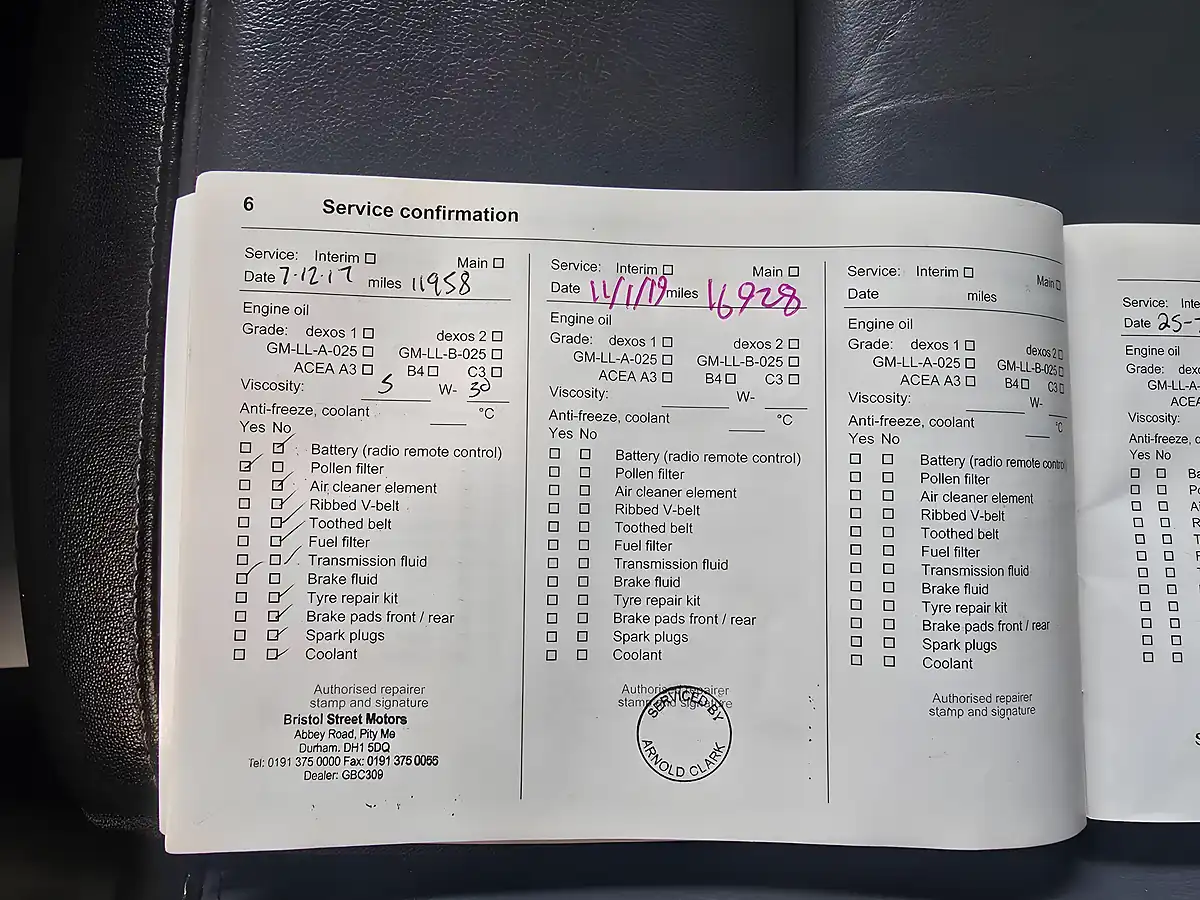 6 Service confirmation
Service: Interim Main
Date 7.12.17 miles 11958
Engine oil
Grade: dexos 1 dexos 2
GM-LL-A-025 GM-LL-B-025
ACEA A3 B4 C3
Viscosity: 5 W- 30
Anti-freeze, coolant °C
Yes No
Battery (radio remote control)
Pollen filter
Air cleaner element
Ribbed V-belt
Toothed belt
Fuel filter
Transmission fluid
Brake fluid
Tyre repair kit
Brake pads front / rear
Spark plugs
Coolant
Authorised repairer
stamp and signature
Bristol Street Motors
Abbey Road, Pity Me
Durham. DH1 5DQ
Tel: 0191 375 0000 Fax: 0191 375 0056
Dealer: GBC309
Service: Interim Main
Date 11/1/19 miles 16928
Engine oil
Grade: dexos 1 dexos 2
GM-LL-A-025 GM-LL-B-025
ACEA A3 B4 C3
Viscosity: W-
Anti-freeze, coolant °C
Yes No
Battery (radio remote control)
Pollen filter
Air cleaner element
Ribbed V-belt
Toothed belt
Fuel filter
Transmission fluid
Brake fluid
Tyre repair kit
Brake pads front / rear
Spark plugs
Coolant
Authorised repairer
stamp and signature
SERVICED BY
ARNOLD CLARK
Service: Interim Main
Date miles
Engine oil
Grade: dexos 1 dexos 2
GM-LL-A-025 GM-LL-B-025
ACEA A3 B4 C3
Viscosity: W-
Anti-freeze, coolant °C
Yes No
Battery (radio remote control)
Pollen filter
Air cleaner element
Ribbed V-belt
Toothed belt
Fuel filter
Transmission fluid
Brake fluid
Tyre repair kit
Brake pads front / rear
Spark plugs
Coolant
Authorised repairer
stamp and signature
Service: Inte
Date 25-
Engine oil
Grade: dexo
GM-LL-A
ACEA
Viscosity:
Anti-freeze, c
Yes No